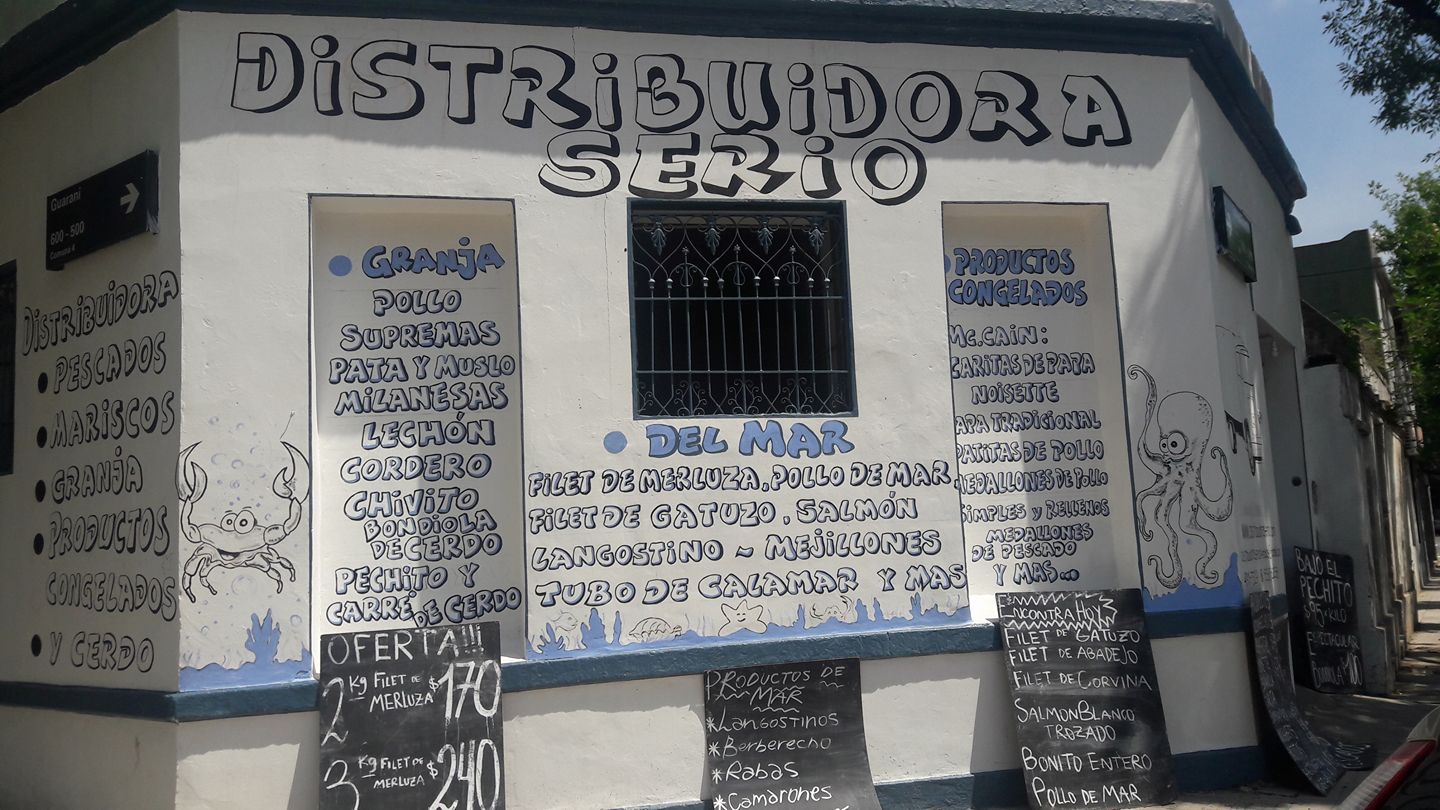 DISTRIBUIDORA
SERIO
Guaraní
600 - 500
Comuna 4
DISTRIBUIDORA
PESCADOS
MARISCOS
GRANJA
PRODUCTOS
CONGELADOS
Y CERDO
GRANJA
POLLO
SUPREMAS
PATA Y MUSLO
MILANESAS
LECHÓN
CORDERO
CHIVITO
BONDIOLA
DE CERDO
PECHITO Y
CARRÉ DE CERDO
DEL MAR
FILET DE MERLUZA, POLLO DE MAR,
FILET DE GATUZO, SALMÓN
LANGOSTINO ~ MEJILLONES
TUBO DE CALAMAR Y MAS
PRODUCTOS
CONGELADOS
Mc.CAIN:
CARITAS DE PAPA
NOISETTE
PAPA TRADICIONAL
PATITAS DE POLLO
MEDALLONES DE POLLO
SIMPLES Y RELLENOS
MEDALLONES
DE PESCADO
Y MAS...
OFERTA!!!
2 Kg FILET DE MERLUZA $170
3 Kg FILET DE MERLUZA $240
PRODUCTOS DE
MAR
*LANGOSTINOS
*Berberecho
*Rabas
*CAMARONES
ENCONTRA HOY
FILET DE GATUZO
FILET DE ABADEJO
FILET DE CORVINA
SALMON BLANCO
TROZADO
BONITO ENTERO
POLLO DE MAR
BAJO EL
PECHITO
$95 KILO